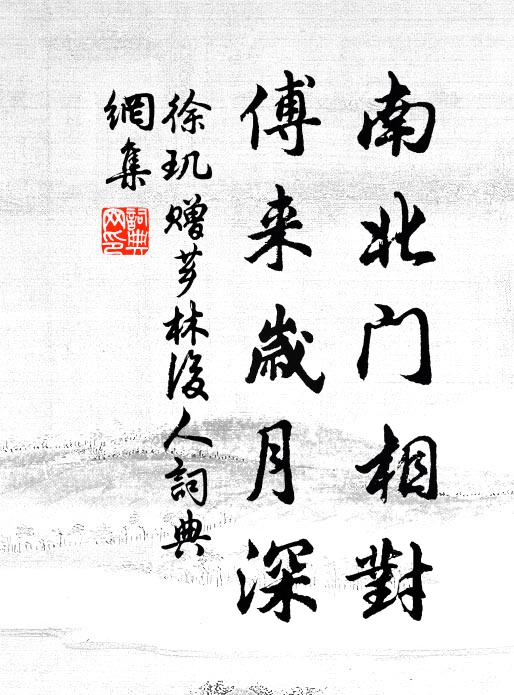 南北门相對
傅来歲月深
徐玑赠芗林後人詞典
網集
詞典
网印